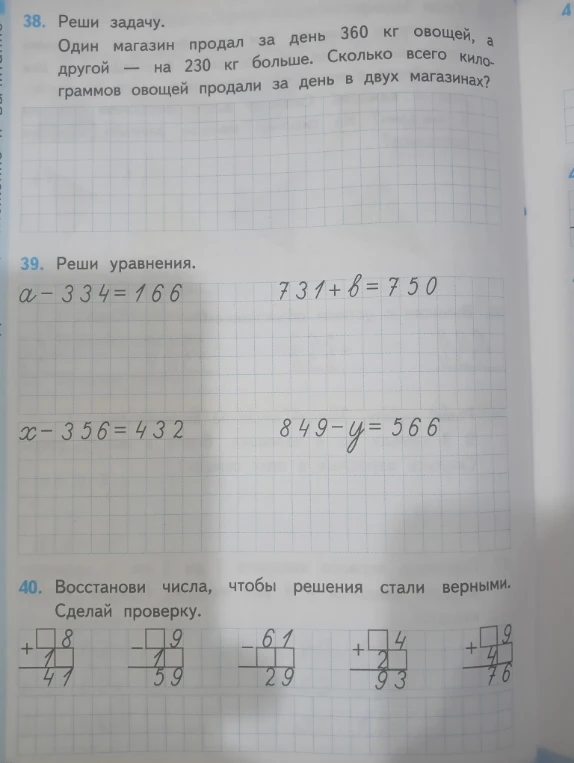 38. Реши задачу.
Один магазин продал за день 360 кг овощей, а
другой — на 230 кг больше. Сколько всего кило-
граммов овощей продали за день в двух магазинах?
39. Реши уравнения.
a − 334 = 166 731 + b = 750
x − 356 = 432 849 − y = 566
40. Восстанови числа, чтобы решения стали верными.
Сделай проверку.
+ □8 − □9 − 61 + □4 + □9
1□ 1□ □□ 2□ 4□
41 59 29 93 76
4